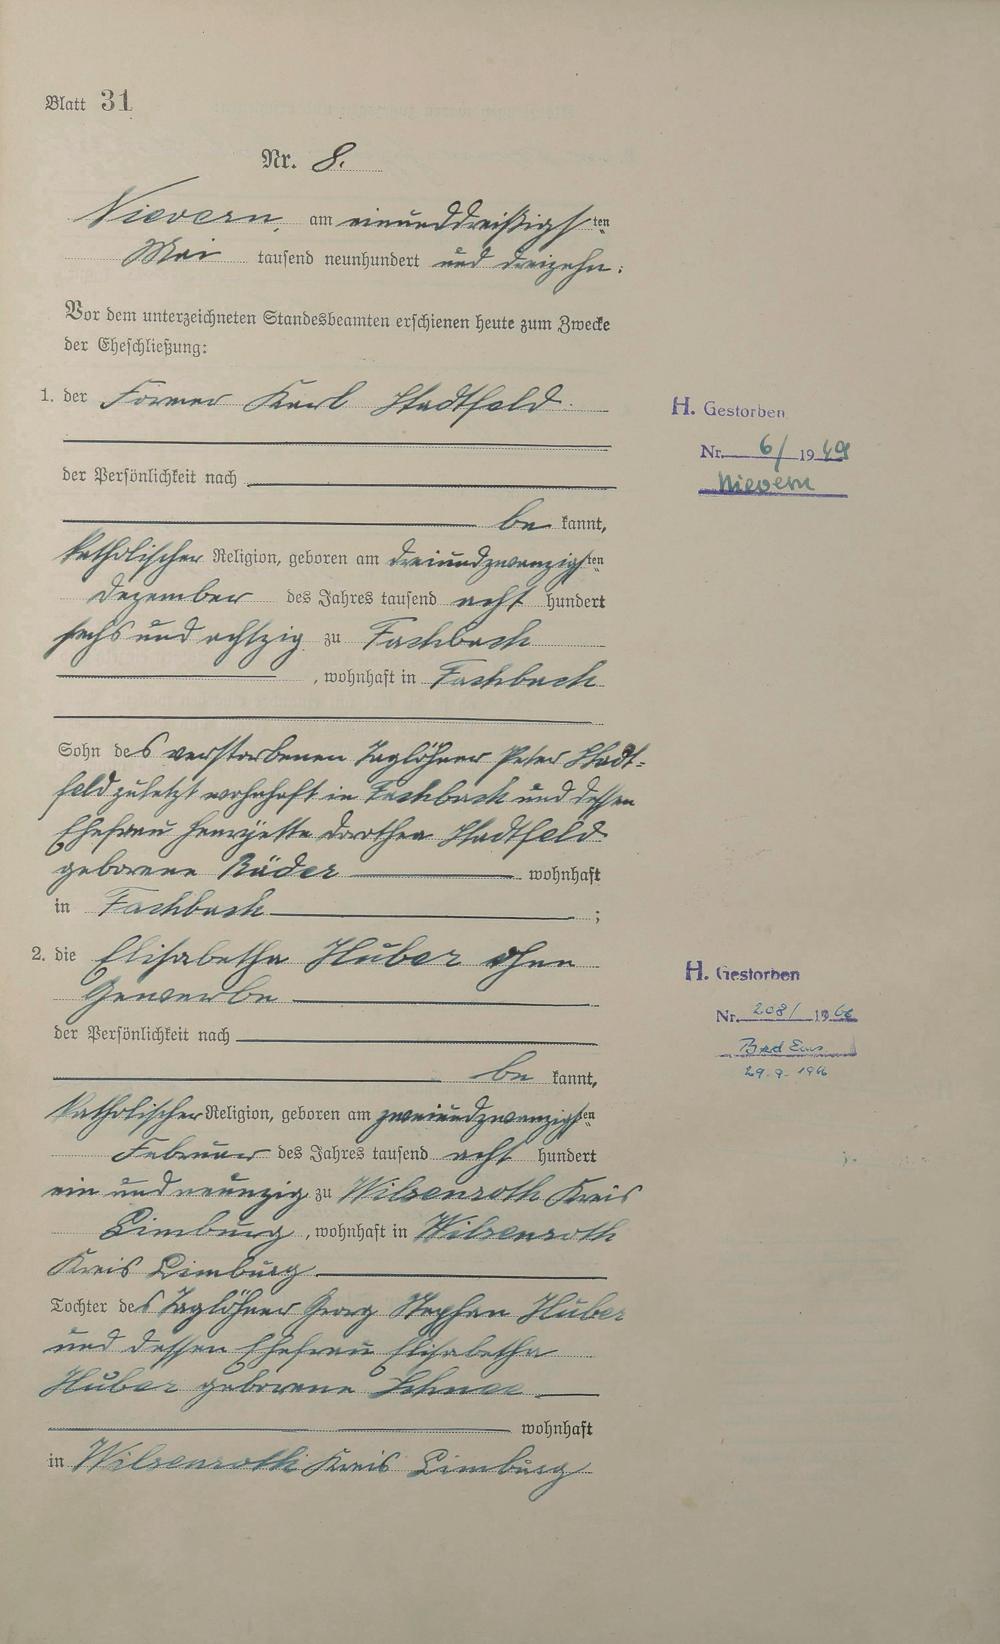 Blatt 31
Nr. 8.
Nievern, am einunddreißigsten
Mai tausend neunhundert und dreizehn:
Vor dem unterzeichneten Standesbeamten erschienen heute zum Zwecke
der Eheschließung:
1. der Former Karl Stadtfeld
H. Gestorben
Nr. 6/ 1949
Nievern
der Persönlichkeit nach
be kannt,
katholischer Religion, geboren am dreiundzwanzigsten
Dezember des Jahres tausend acht hundert
sechs und achtzig zu Fachbach
, wohnhaft in Fachbach
Sohn des verstorbenen Taglöhner Peter Stadt-
feld zuletzt wohnhaft in Fachbach und dessen
Ehefrau Henryette Dorothea Stadtfeld
geborene Räder wohnhaft
in Fachbach ;
2. die Elisabetha Huber ohne
Gewerbe
H. Gestorben
Nr. 208/ 1966
Bad Ems
29.9.1966
der Persönlichkeit nach
be kannt,
katholischer Religion, geboren am zweiundzwanzigsten
Februar des Jahres tausend acht hundert
ein und neunzig zu Wilsenroth Kreis
Limburg, wohnhaft in Wilsenroth
Kreis Limburg
Tochter des Taglöhner Georg Stephan Huber
und dessen Ehefrau Elisabetha
Huber geborene Schnee
wohnhaft
in Wilsenroth Kreis Limburg